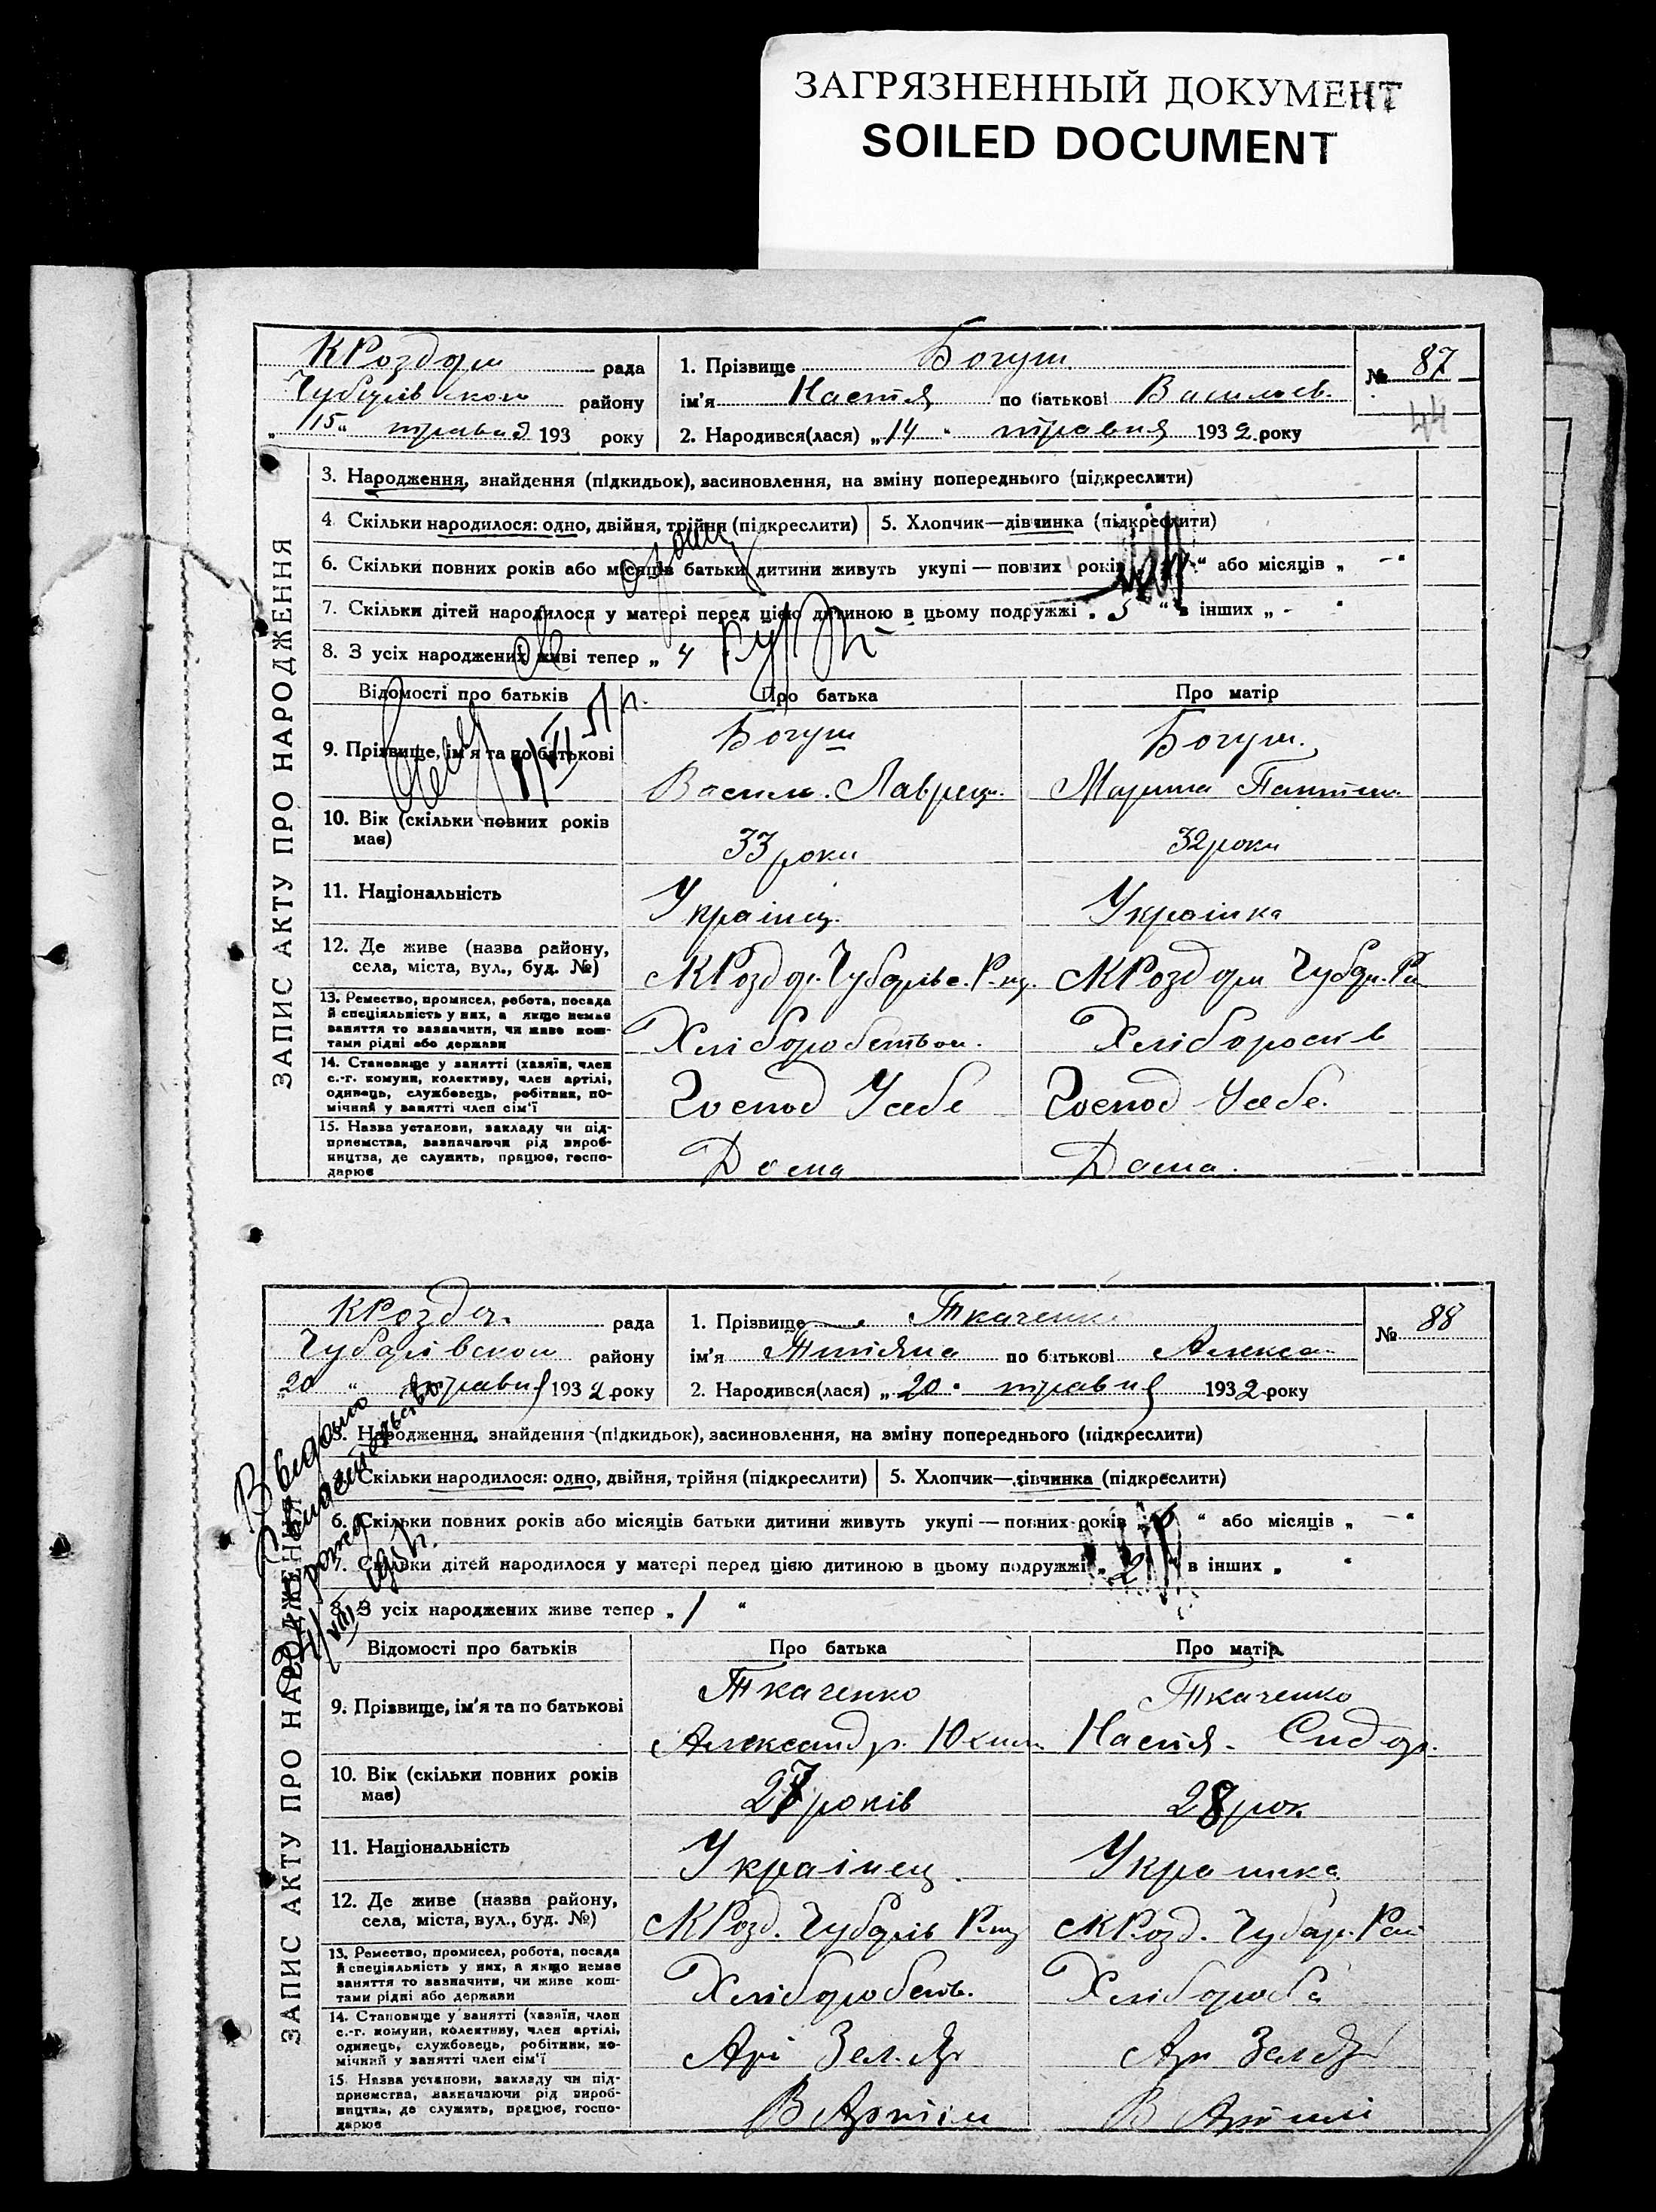 ЗАГРЯЗНЕННЫЙ ДОКУМЕНТ
SOILED DOCUMENT
КРоздори рада
Чубарівского району
„15“ травня 193 року
1. Прізвище Богуш
ім'я Настя по батькові Васильев.
2. Народився(лася) „14“ травня 1932 року
№ 87
44
ЗАПИС АКТУ ПРО НАРОДЖЕННЯ
3. Народження, знайдення (підкидьок), засиновлення, на зміну попереднього (підкреслити)
4. Скільки народилося: одно, двійня, трійня (підкреслити)
5. Хлопчик—дівчинка (підкреслити)
6. Скільки повних років або місяців батьки дитини живуть укупі — повних років “ або місяців „ —“
7. Скільки дітей народилося у матері перед цією дитиною в цьому подружжі „ 5 “ в інших „ - “
8. З усіх народжених живі тепер „ 4
Відомості про батьків
Про батька
Про матір
9. Прізвище, ім'я та по батькові
Богуш
Василь. Лаврен.
Богуш.
Марина
10. Вік (скільки повних років має)
33 роки
32 роки
11. Національність
Українец.
Українка
12. Де живе (назва району, села, міста, вул., буд. №)
МКРозд ор. Чубарівс. Р-ну.
МКРозд ори Чубар. Ра
13. Ремество, промисел, робота, посада й спеціяльність у них, а якщо немає заняття то зазначити, чи живе коштами рідні або держави
Хліборобством.
14. Становище у занятті (хазяїн, член с.-г. комуни, колективу, член артілі, одинець, службовець, робітник, помічний у занятті член сім'ї
Господ Усебе
Господ Усебе.
15. Назва установи, закладу чи підприємства, зазначаючи рід виробництва, де служить, працює, господарює
Дома
Дома.
КРоздо. рада
Чубарівском району
„20 “ травня 1932 року
1. Прізвище Ткаченко
ім'я Титяна по батькові Алекса
2. Народився(лася) „20“ травня 1932 року
№ 88
Видано
Свидетельство
о рожд
ЗАПИС АКТУ ПРО НАРОДЖЕННЯ
3. Народження, знайдення (підкидьок), засиновлення, на зміну попереднього (підкреслити)
4. Скільки народилося: одно, двійня, трійня (підкреслити)
5. Хлопчик—дівчинка (підкреслити)
6. Скільки повних років або місяців батьки дитини живуть укупі — повних років „ 6 “ або місяців „ —“
7. Скільки дітей народилося у матері перед цією дитиною в цьому подружжі „ 2 “ в інших „ “
8. З усіх народжених живе тепер „ 1 “
Відомості про батьків
Про батька
Про матір
9. Прізвище, ім'я та по батькові
Ткаченко
Александр. Юхим
Ткаченко
Настя - Сидор.
10. Вік (скільки повних років має)
27 років
28 рок
11. Національність
Українец.
Украинка
12. Де живе (назва району, села, міста, вул., буд. №)
МКРозд. Чубарів Р-ну
МКРозд. Чубар. Рай
13. Ремество, промисел, робота, посада й спеціяльність у них, а якщо немає заняття то зазначити, чи живе коштами рідні або держави
Хліборобств.
Хлібороба
14. Становище у занятті (хазяїн, член с.-г. комуни, колективу, член артілі, одинець, службовець, робітник, помічний у занятті член сім'ї
15. Назва установи, закладу чи підприємства, зазначаючи рід виробництва, де служить, працює, господарює
В Артіли
В Артілі